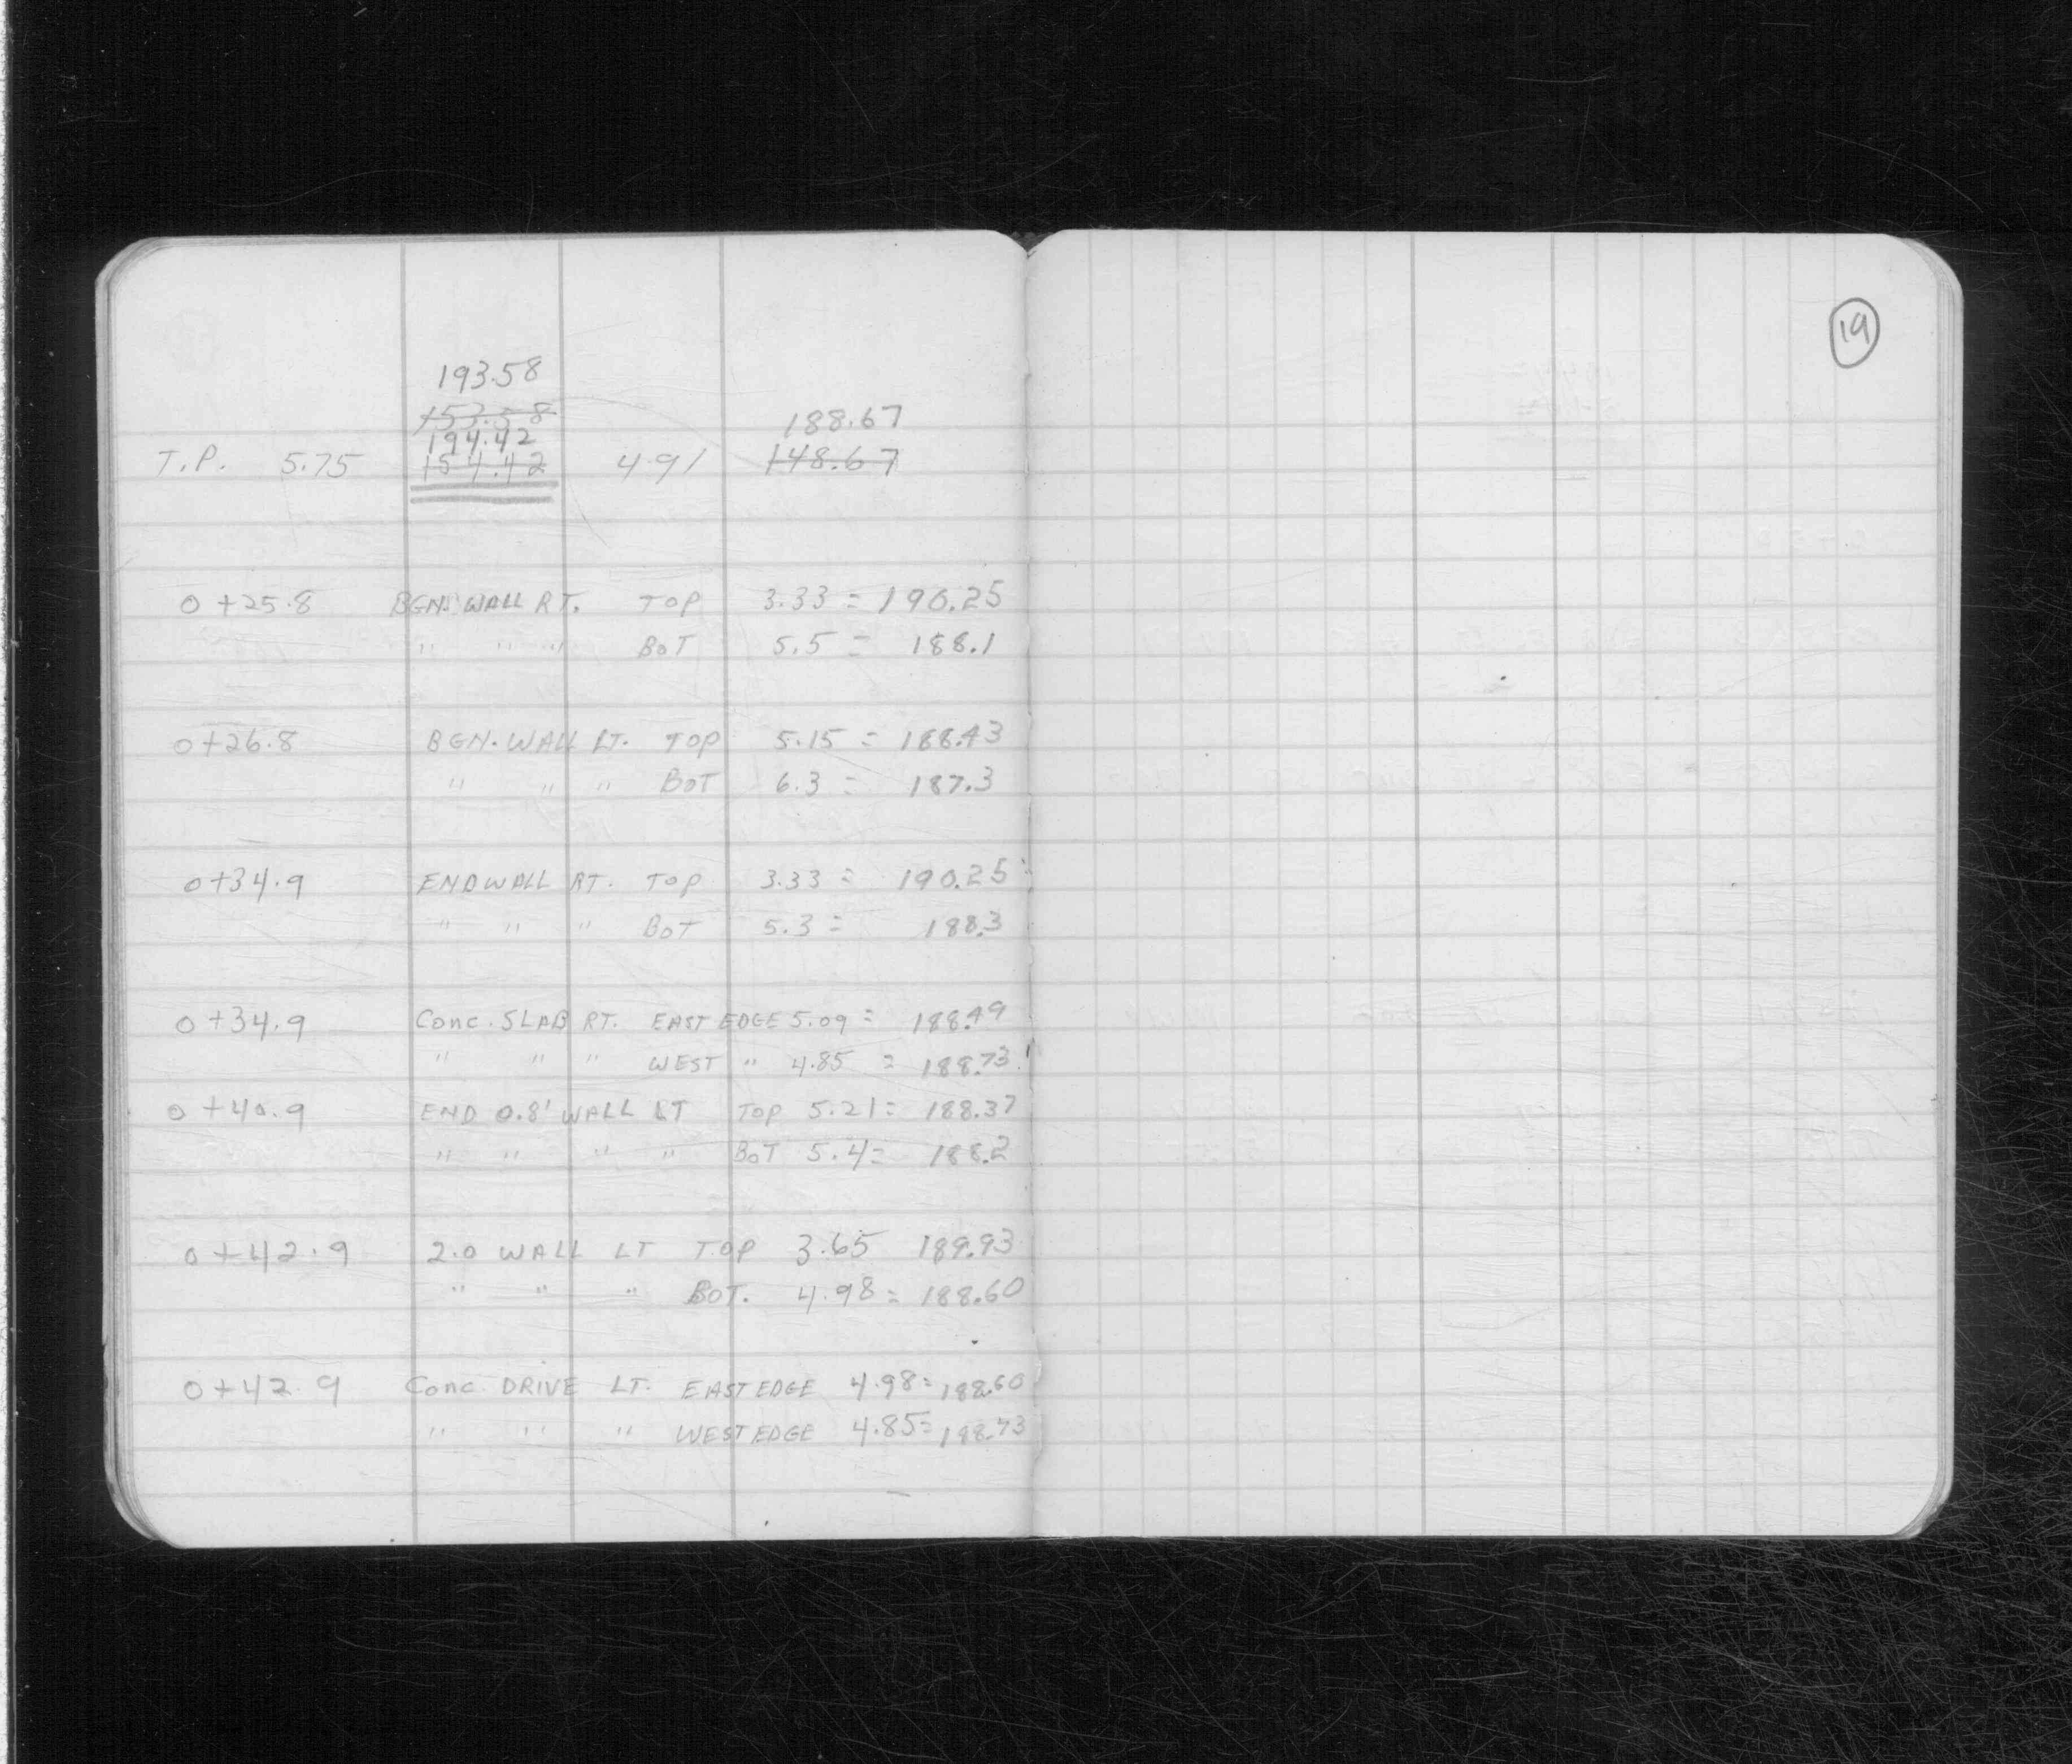 19
193.58
153.58
194.42 188.67
T.P. 5.75 154.42 4.91 148.67
0+25.8 BGN. WALL RT. TOP 3.33 = 190.25
" " " BOT 5.5 = 188.1
0+26.8 BGN. WALL LT. TOP 5.15 = 188.43
" " " BOT 6.3 = 187.3
0+34.9 END WALL RT. TOP 3.33 = 190.25
" " " BOT 5.3 = 188.3
0+34.9 CONC. SLAB RT. EAST EDGE 5.09 = 188.49
" " " WEST " 4.85 = 188.73
0+40.9 END 0.8' WALL LT TOP 5.21 = 188.37
" " " " BOT 5.4 = 188.2
0+42.9 2.0 WALL LT TOP 3.65 189.93
" " " BOT. 4.98 = 188.60
0+42.9 CONC DRIVE LT. EAST EDGE 4.98 = 188.60
" " " WEST EDGE 4.85 = 188.73